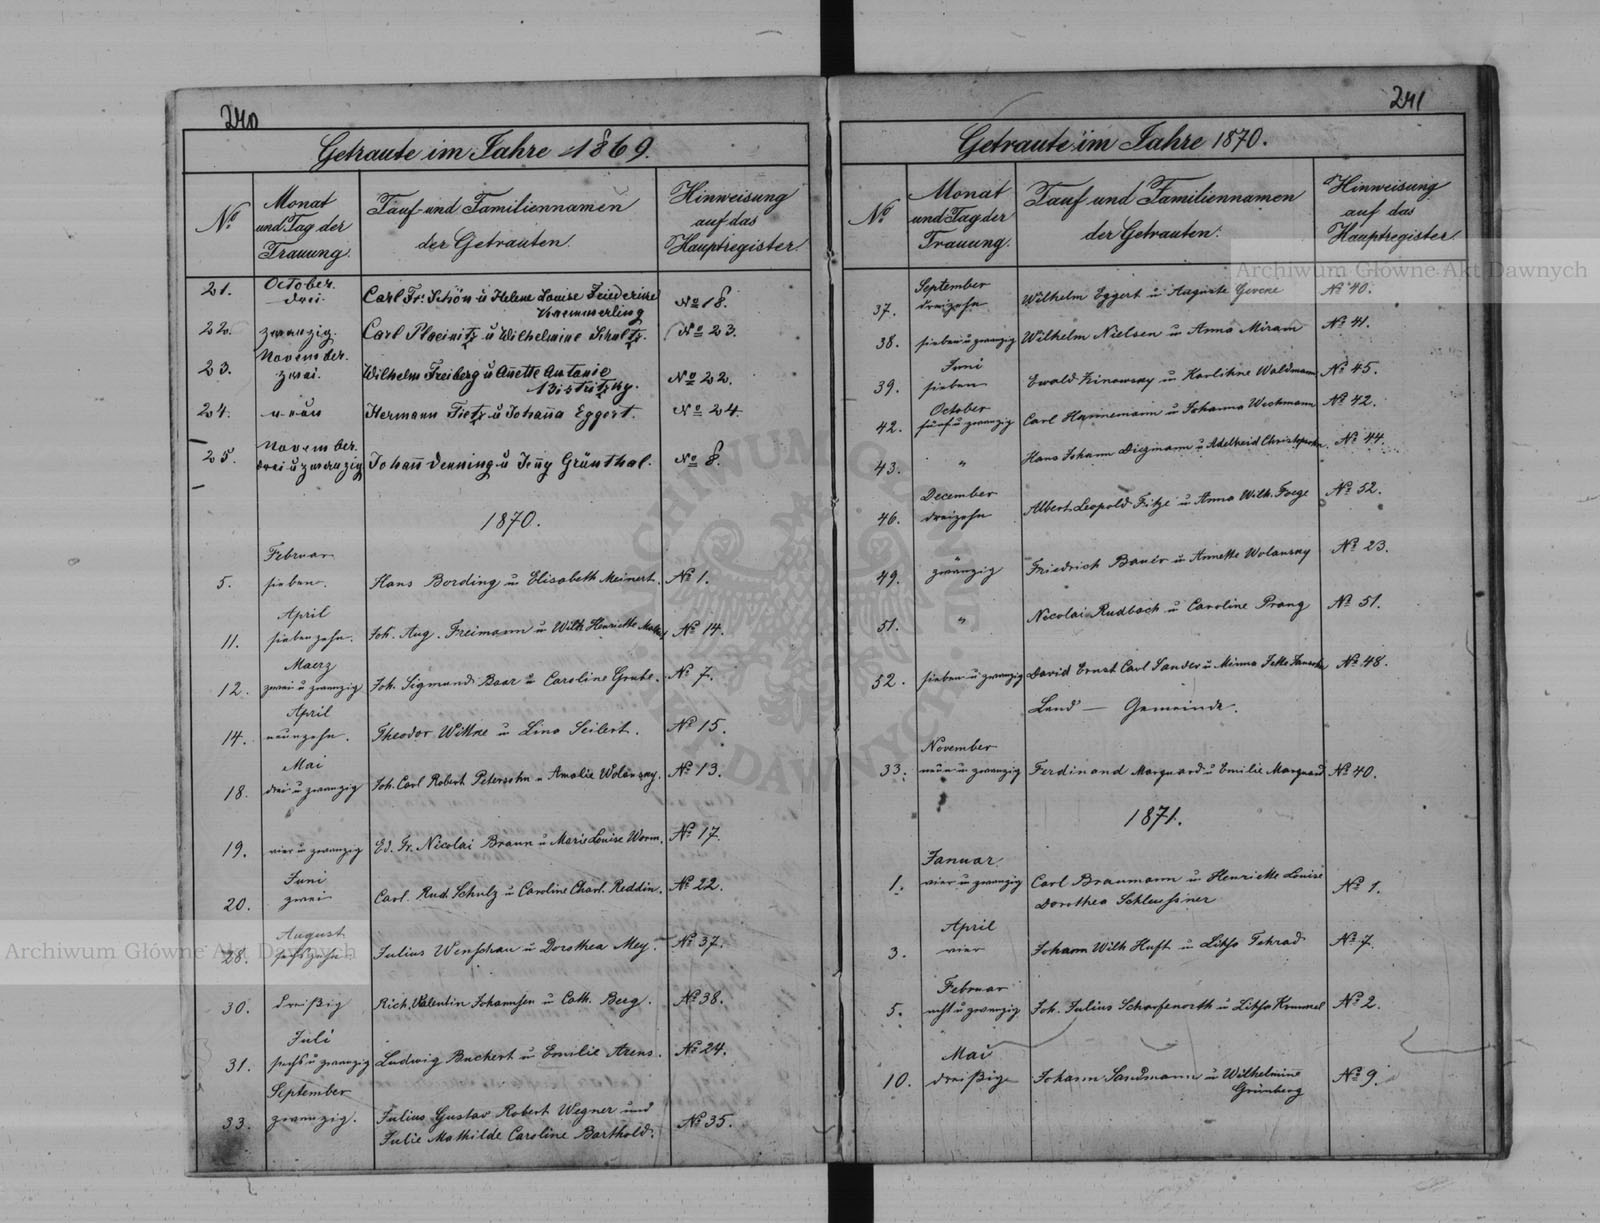 240
Getraute im Jahre 1869.
No
Monat und Tag der Trauung.
Tauf und Familiennamen der Getrauten.
Hinweisung auf das Hauptregister
21. October drei Carl Fr. Schön u Helene Louise Friederike
Kraemmerling No 18.
22. zwanzig. Carl Placinitz u Wilhelmine Schultz. No 23.
23. November zwei. Wilhelm Freiberg u Anette Antonie
Bistritzky. No 22.
24. neun Hermann Tietz u Johanna Eggert. No 24.
25. November drei u zwanzig Johann Denning u Jenny Grünthal. No 8.
1870.
5. Februar sieben. Hans Bording u Elisabeth Meinert. No 1.
11. April siebenzehn. Joh. Aug. Freimann u Wilh Henriette No 14.
12. Maerz zwei u zwanzig Joh. Sigmund Baar u Caroline Grube. No 7.
14. April neunzehn. Theodor Wittke u Lina Seibert. No 15.
18. Mai drei u zwanzig Joh. Carl Robert Petersohn u Amalie Wolansky. No 13.
19. vier u zwanzig Ed. Fr. Nicolai Braun u Marie Louise Worm. No 17.
20. Juni zwei Carl. Rud. Schulz u Caroline Charl. Reddin. No 22.
28. August sechszehn. Julius Wenschau u Dorothea Mey. No 37.
30. dreißig Rich. Valentin Johannsen u Cath. Berg. No 38.
31. Juli sechs u zwanzig Ludwig Buchert u Emilie Arens. No 24.
33. September zwanzig. Julius Gustav Robert Wegner und
Julie Mathilde Caroline Barthold. No 35.
241
Getraute im Jahre 1870.
No
Monat und Tag der Trauung.
Tauf und Familiennamen der Getrauten.
Hinweisung auf das Hauptregister.
37. September dreizehn Wilhelm Eggert u Auguste Gerene No 40.
38. sieben u zwanzig Wilhelm Nielsen u Anna Miram No 41.
39. Juni sieben Ewald Zinowsky u Karline Waldmann No 45.
42. October fünf u zwanzig Carl Hannemann u Johanna Weckmann No 42.
43. " Hans Johann Diegmann u Adelheid Christophsohn. No 44.
46. December dreizehn Albert Leopold Fitze u Anna Wilh. Foege No 52.
49. zwanzig Friedrich Bauer u Annette Wolansky No 23.
51. " Nicolai Rudbach u Caroline Prang No 51.
52. sieben u zwanzig David Ernst Carl Sander u Minna Jette No 48.
Land — Gemeinde.
33. November neun u zwanzig Ferdinand Marquard u Emilie Marquard No 40.
1871.
1. Januar vier u zwanzig Carl Braumann u Henriette Louise
Dorothea Schleussner No 1.
3. April vier Johann Wilh Huft u Liksa Fehrad No 7.
5. Februar acht u zwanzig Joh. Julius Scharfenorth u Liksa Krummel No 2.
10. Mai dreißig Johann Sandmann u Wilhelmine
Grünberg No 9.
Archiwum Główne Akt Dawnych
Archiwum Główne Akt Dawnych
ARCHIWUM GŁÓWNE AKT DAWNYCH